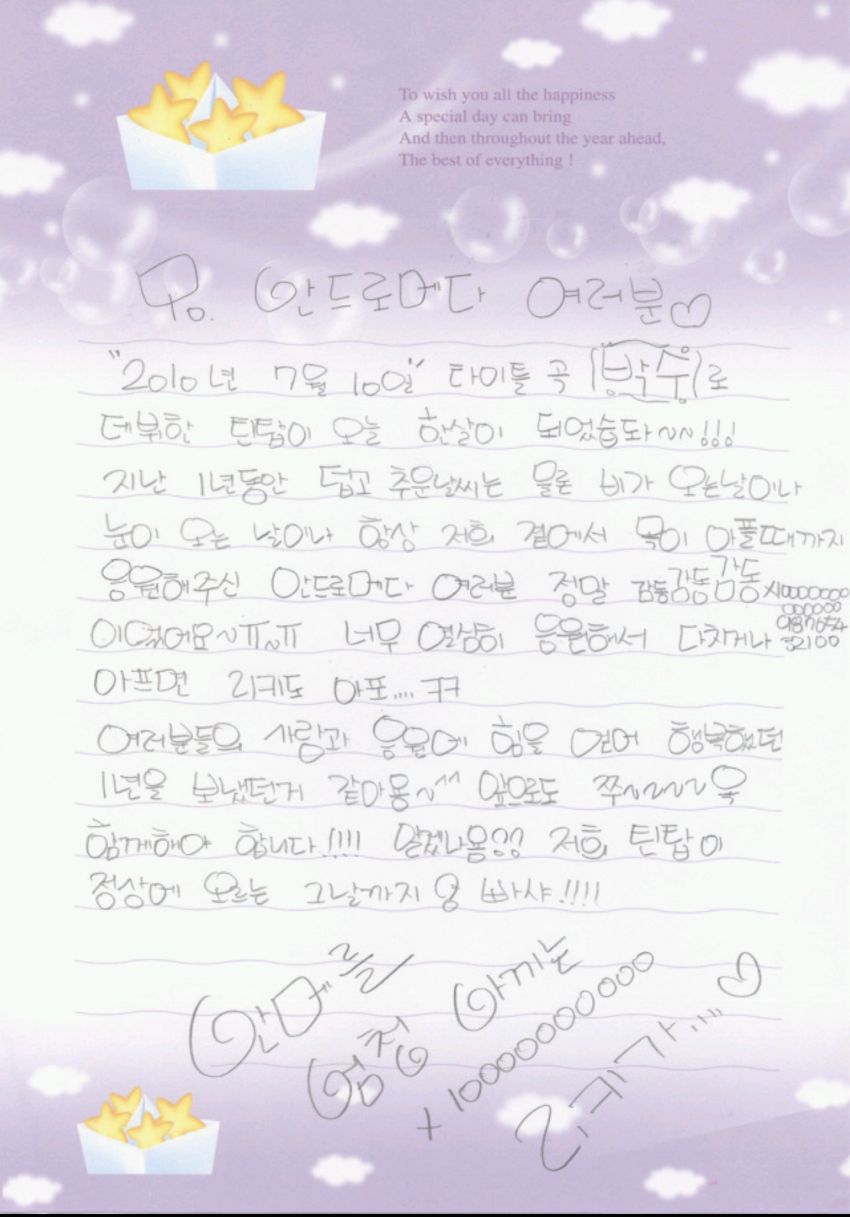 To wish you all the happiness
A special day can bring
And then throughout the year ahead,
The best of everything !
To. 안드로메다 여러분♡
"2010년 7월 10일" 타이틀 곡 (박수)로
데뷔한 틴탑이 오늘 한살이 되었습돠~~!!!
지난 1년동안 덥고 추운날씨는 물론 비가 오는날이나
눈이 오는 날이나 항상 저희 곁에서 목이 아플때까지
응원해주신 안드로메다 여러분 정말 감동감동감동 x10000000
000000
987654
32100
이였어요~ㅠ~ㅠ 너무 열심히 응원해서 다치거나
아프면 리키도 아포.... ㅋㅋ
여러분들의 사랑과 응원에 힘을 얻어 행복했던
1년을 보냈던거 같아용~^^ 앞으로도 쭈~~~~욱
함께해야 합니다!!!! 알겠나용?? 저희 틴탑이
정상에 오르는 그날까지 영 빠샤!!!!
안메를
엄청 아끼는
x 10000000000
리키가....♡